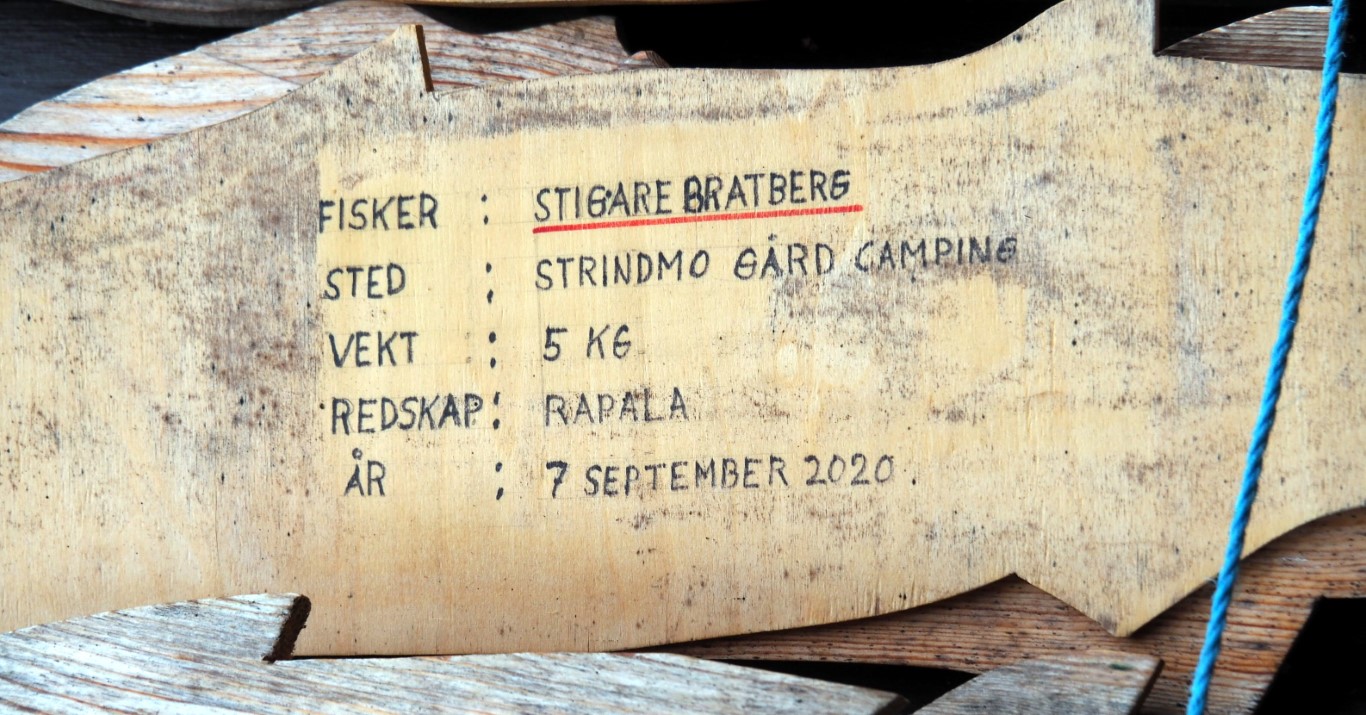 FISKER : STIGARE BRATBERG
STED : STRINDMO GÅRD CAMPING
VEKT : 5 KG
REDSKAP : RAPALA
ÅR : 7 SEPTEMBER 2020.